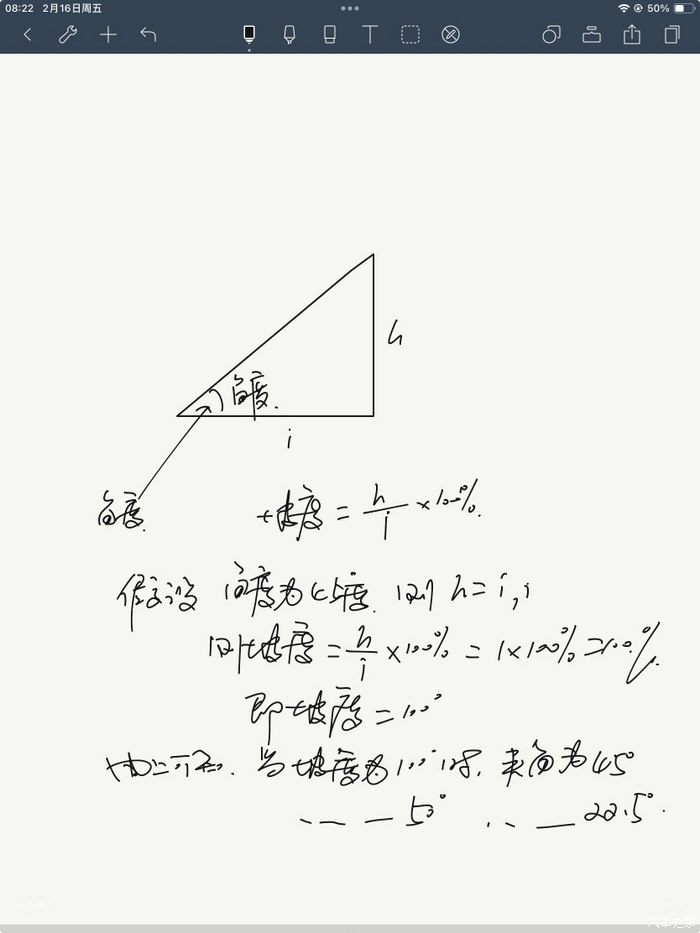 08:22 2月16日周五
50%
T
h
角度.
i
角度.
坡度 = h/i ×100%.
假设 角度为45度. 则 h = i,
则坡度 = h/i ×100% = 1×100% =100%.
即坡度 = 100°
由此可知. 当坡度为100°时. 夹角为45°
50° 22.5°.
汽车之家